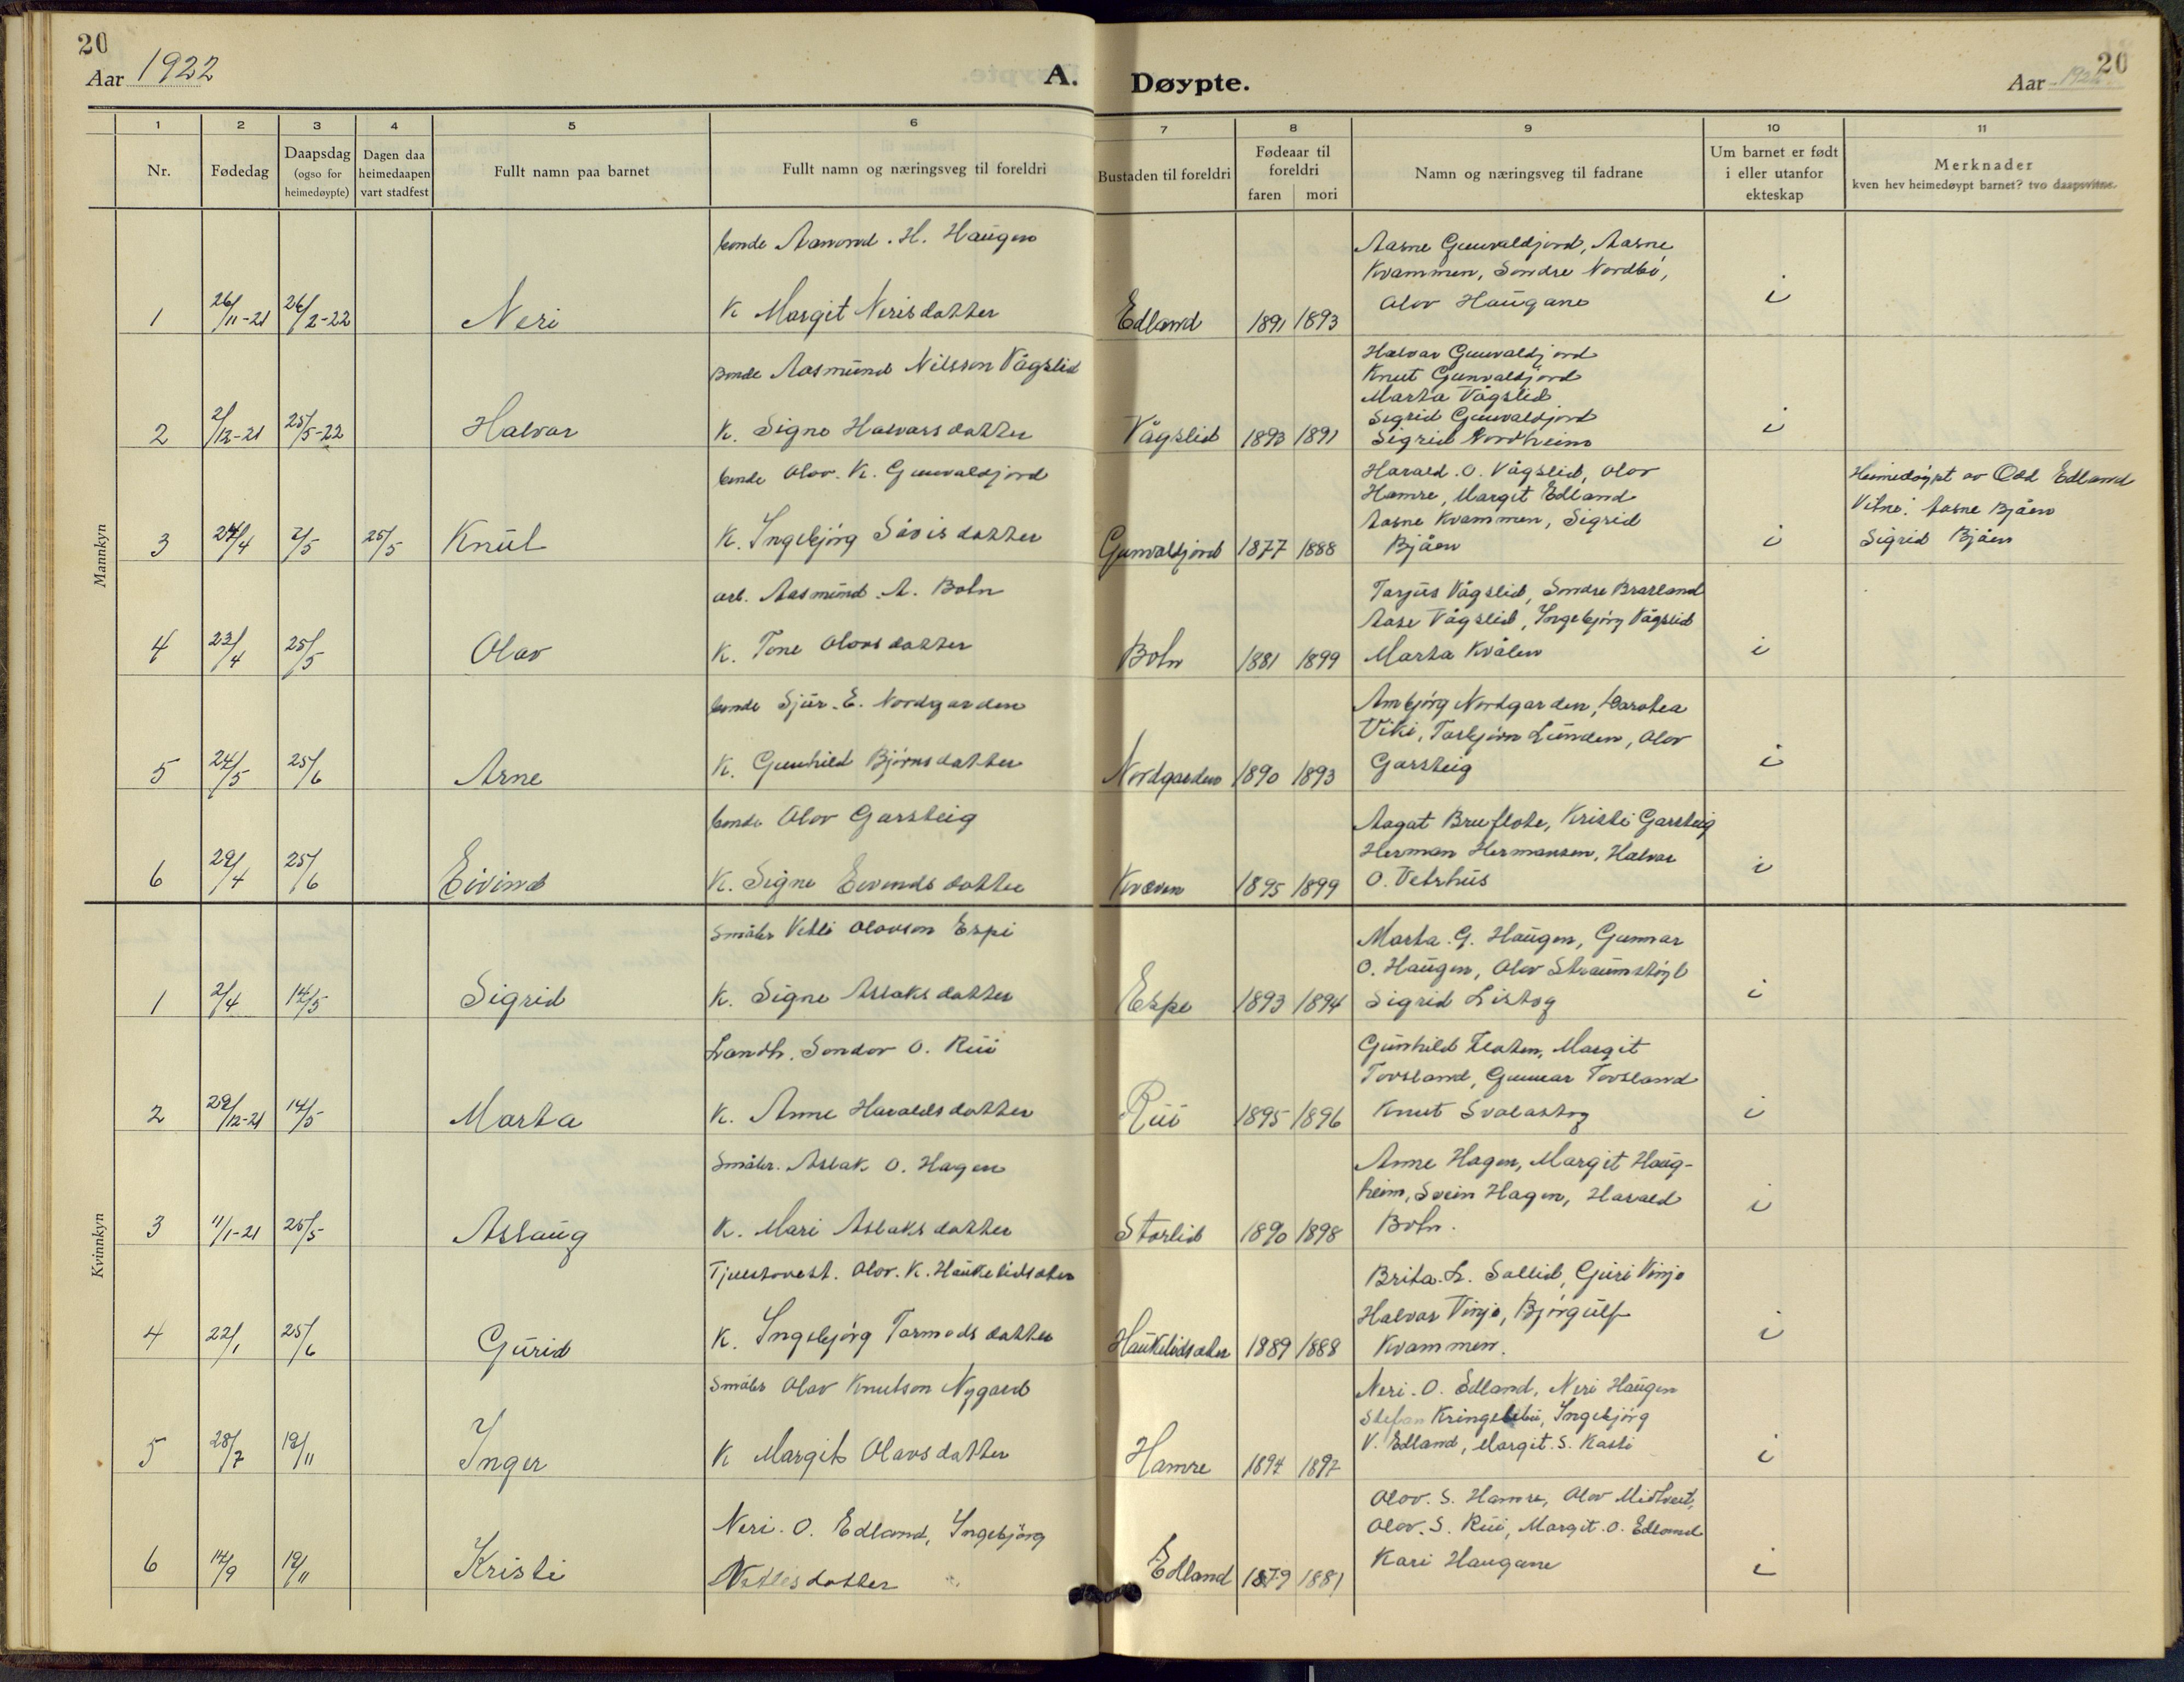 20
Aar 1922
A. Døypte.
20
Aar 1922
1 2 3 4 5 6 7 8 9 10 11
Nr.
Fødedag
Daapsdag (ogso for heimedøypte)
Dagen daa heimedaapen vart stadfest
Fullt namn paa barnet
Fullt namn og næringsveg til foreldri
Bustaden til foreldri
Fødeaar til foreldri
faren mori
Namn og næringsveg til fadrane
Um barnet er født i eller utanfor ekteskap
Merknader
kven hev heimedøypt barnet? tvo daapsvitne.
Mannkyn
bonde Aamund. H. Haugen
Aasne Gunvaldjord, Aasne
Kvammen, Sondre Nordbø,
Olav Haugane
1 26/11-21 26/2-22 Neri K Margit Nerisdatter Edland 1891 1893 i
Bonde Aasmund Nilsson Vågslid
Halvar Gunvaldjord
Knut Gunvaldjord
Marta Vågslid
Sigrid Gunvaldjord
2 2/12-21 25/5-22 Halvar K. Signe Halvarsdatter Vågslid 1893 1891 Sigrid Nordheim i
bonde Olav. K. Gunvaldjord
Harald. O. Vågslid, Olav
Hamre, Margit Edland
Aasne Kvammen, Sigrid
Heimedøypt av Odd Edland
Vitne: Aasne Bjåen
3 24/4 2/5 25/5 Knut K. Ingebjørg Såvisdatter Gunvaldjord 1877 1888 Bjåen i Sigrid Bjåen
arb. Aasmund. A. Bohn
Tarjus Vågslid, Sondre Brasland
Aase Vågslid, Ingebjørg Vågslid
4 23/4 25/5 Olav K. Tone Olavsdatter Bohn 1881 1899 Marta Kvålen i
bonde Sjur. E. Nordgarden
Ambjørg Nordgarden, Darotea
Viki, Torbjørn Lunden, Olav
5 24/5 25/6 Arne K. Gunhild Bjørnsdatter Nordgarden 1890 1893 Garsteig i
bonde Olav Garsteig
Aagat Bruflote, Kristi Garsteig
Herman Hermansen, Halvar
6 29/4 25/6 Eivind K. Signe Eivindsdatter Kvæven 1895 1899 O. Vetrhus i
Kvinnkyn
Småbr Vetli Olavson Espi
Marta. G. Haugen, Gunnar
O. Haugen, Olav Straumstøyl
1 2/4 14/5 Sigrid K. Signe Aslaksdatter Espe 1893 1894 Sigrid Listog i
Landh. Sondov O. Rui
Gunhild Flaten, Margit
Tovsland, Gunnar Tovsland
2 29/12-21 14/5 Marta K. Anne Haraldsdatter Rui 1895 1896 Knut Svalastog i
Småbr. Aslak O. Hagen
Anne Hagen, Margit Haug-
heim, Svein Hagen, Harald
3 11/1-21 25/5 Aslaug K. Mari Aslaksdatter Storlid 1890 1898 Bohn. i
Tjuustovest. Olav. K. Haukelidsæter
Brita. L. Sallid, Guri Vinje
Halvar Vinje, Bjørgulf
4 22/1 25/6 Gurid K. Ingebjørg Tarmodsdatter Haukelidsæter 1889 1888 Kvammen. i
Småbr Olav Knutson Nygard
Neri. O. Edland, Neri Haugen
Stefan Kringlebu, Ingebjørg
5 28/7 19/11 Inger K Margit Olavsdatter Hamre 1894 1897 V. Edland, Margit. S. Kasli i
Neri. O. Edland, Ingebjørg
Olav. S. Hamre, Olav Midtveit,
Olav. S. Rui, Margit. O. Edland
6 14/9 19/11 Kristi Vetlesdatter Edland 1879 1881 Kari Haugane i